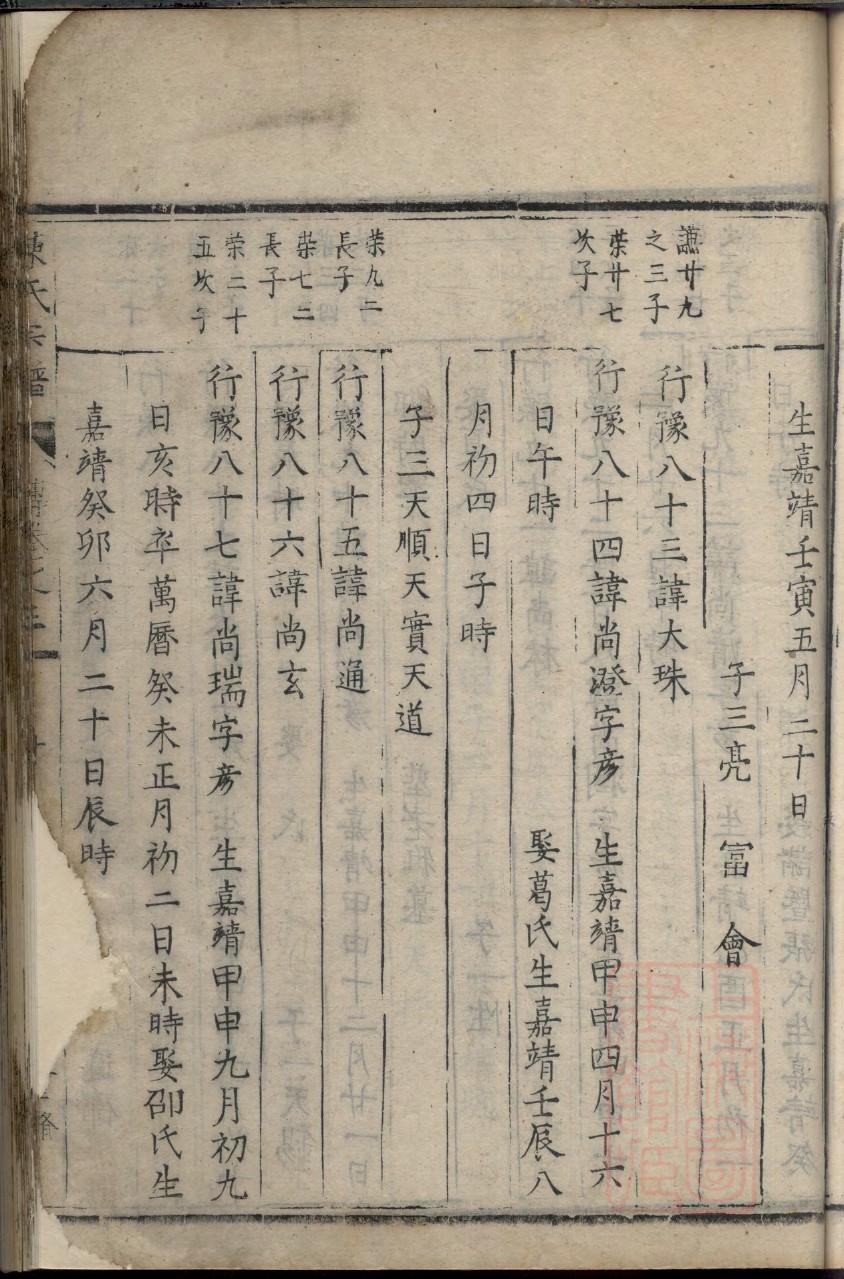 生嘉靖壬寅五月二十日
子三亮 富 會
謙廿九
之三子
行豫八十三諱大珠
荣廿七
次子
行豫八十四諱尚澄字彦 生嘉靖甲申四月十六
日午時 娶葛氏生嘉靖壬辰八
月初四日子時
子三天順天實天道
荣九二
長子
行豫八十五諱尚通
荣七二
長子
行豫八十六諱尚玄
荣二十
五次子
行豫八十七諱尚瑞字彦 生嘉靖甲申九月初九
日亥時卒萬曆癸未正月初二日未時娶邵氏生
嘉靖癸卯六月二十日辰時
陳氏宗譜